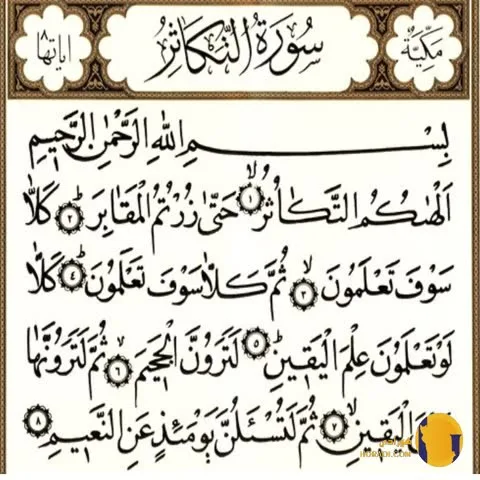 مكية
سورة التكاثر
اياتها ٨
بِسْمِ اللهِ الرَّحْمٰنِ الرَّحِيْمِ
اَلْهٰىكُمُ التَّكَاثُرُ ۙ﴿١﴾ حَتّٰى زُرْتُمُ الْمَقَابِرَ ؕ﴿٢﴾ كَلَّا
سَوْفَ تَعْلَمُوْنَ ۙ﴿٣﴾ ثُمَّ كَلَّا سَوْفَ تَعْلَمُوْنَ ؕ﴿٤﴾ كَلَّا
لَوْ تَعْلَمُوْنَ عِلْمَ الْيَقِيْنِ ؕ﴿٥﴾ لَتَرَوُنَّ الْجَحِيْمَ ۙ﴿٦﴾ ثُمَّ لَتَرَوُنَّهَا
الْيَقِيْنِ ۙ﴿٧﴾ ثُمَّ لَتُسْـَٔلُنَّ يَوْمَئِذٍ عَنِ النَّعِيْمِ ﴿٨﴾
HORADI.COM